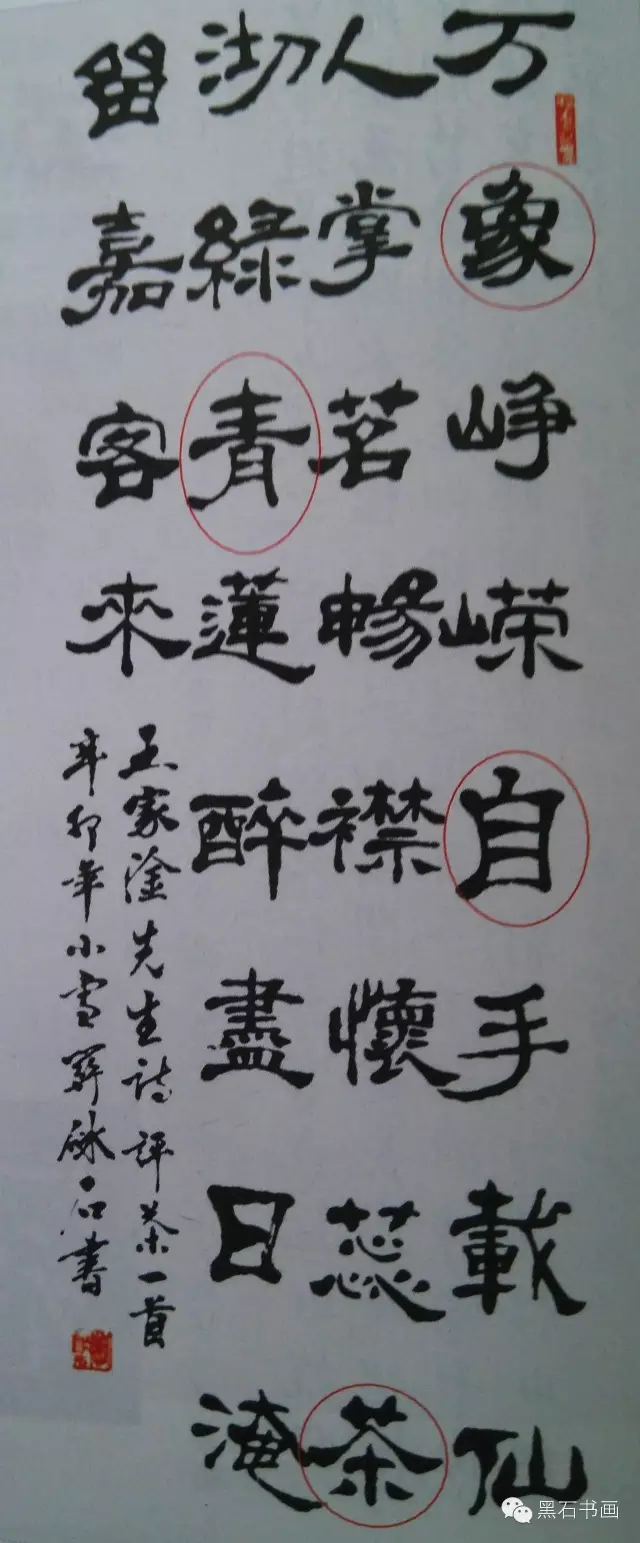 万象峥嵘自手載仙
人掌茗暢襟懷蕊茶
沏緑青蓮醉盡日淹
留嘉客來
王家淦先生詩評茶一首
辛卯年小雪 石書
黑石书画